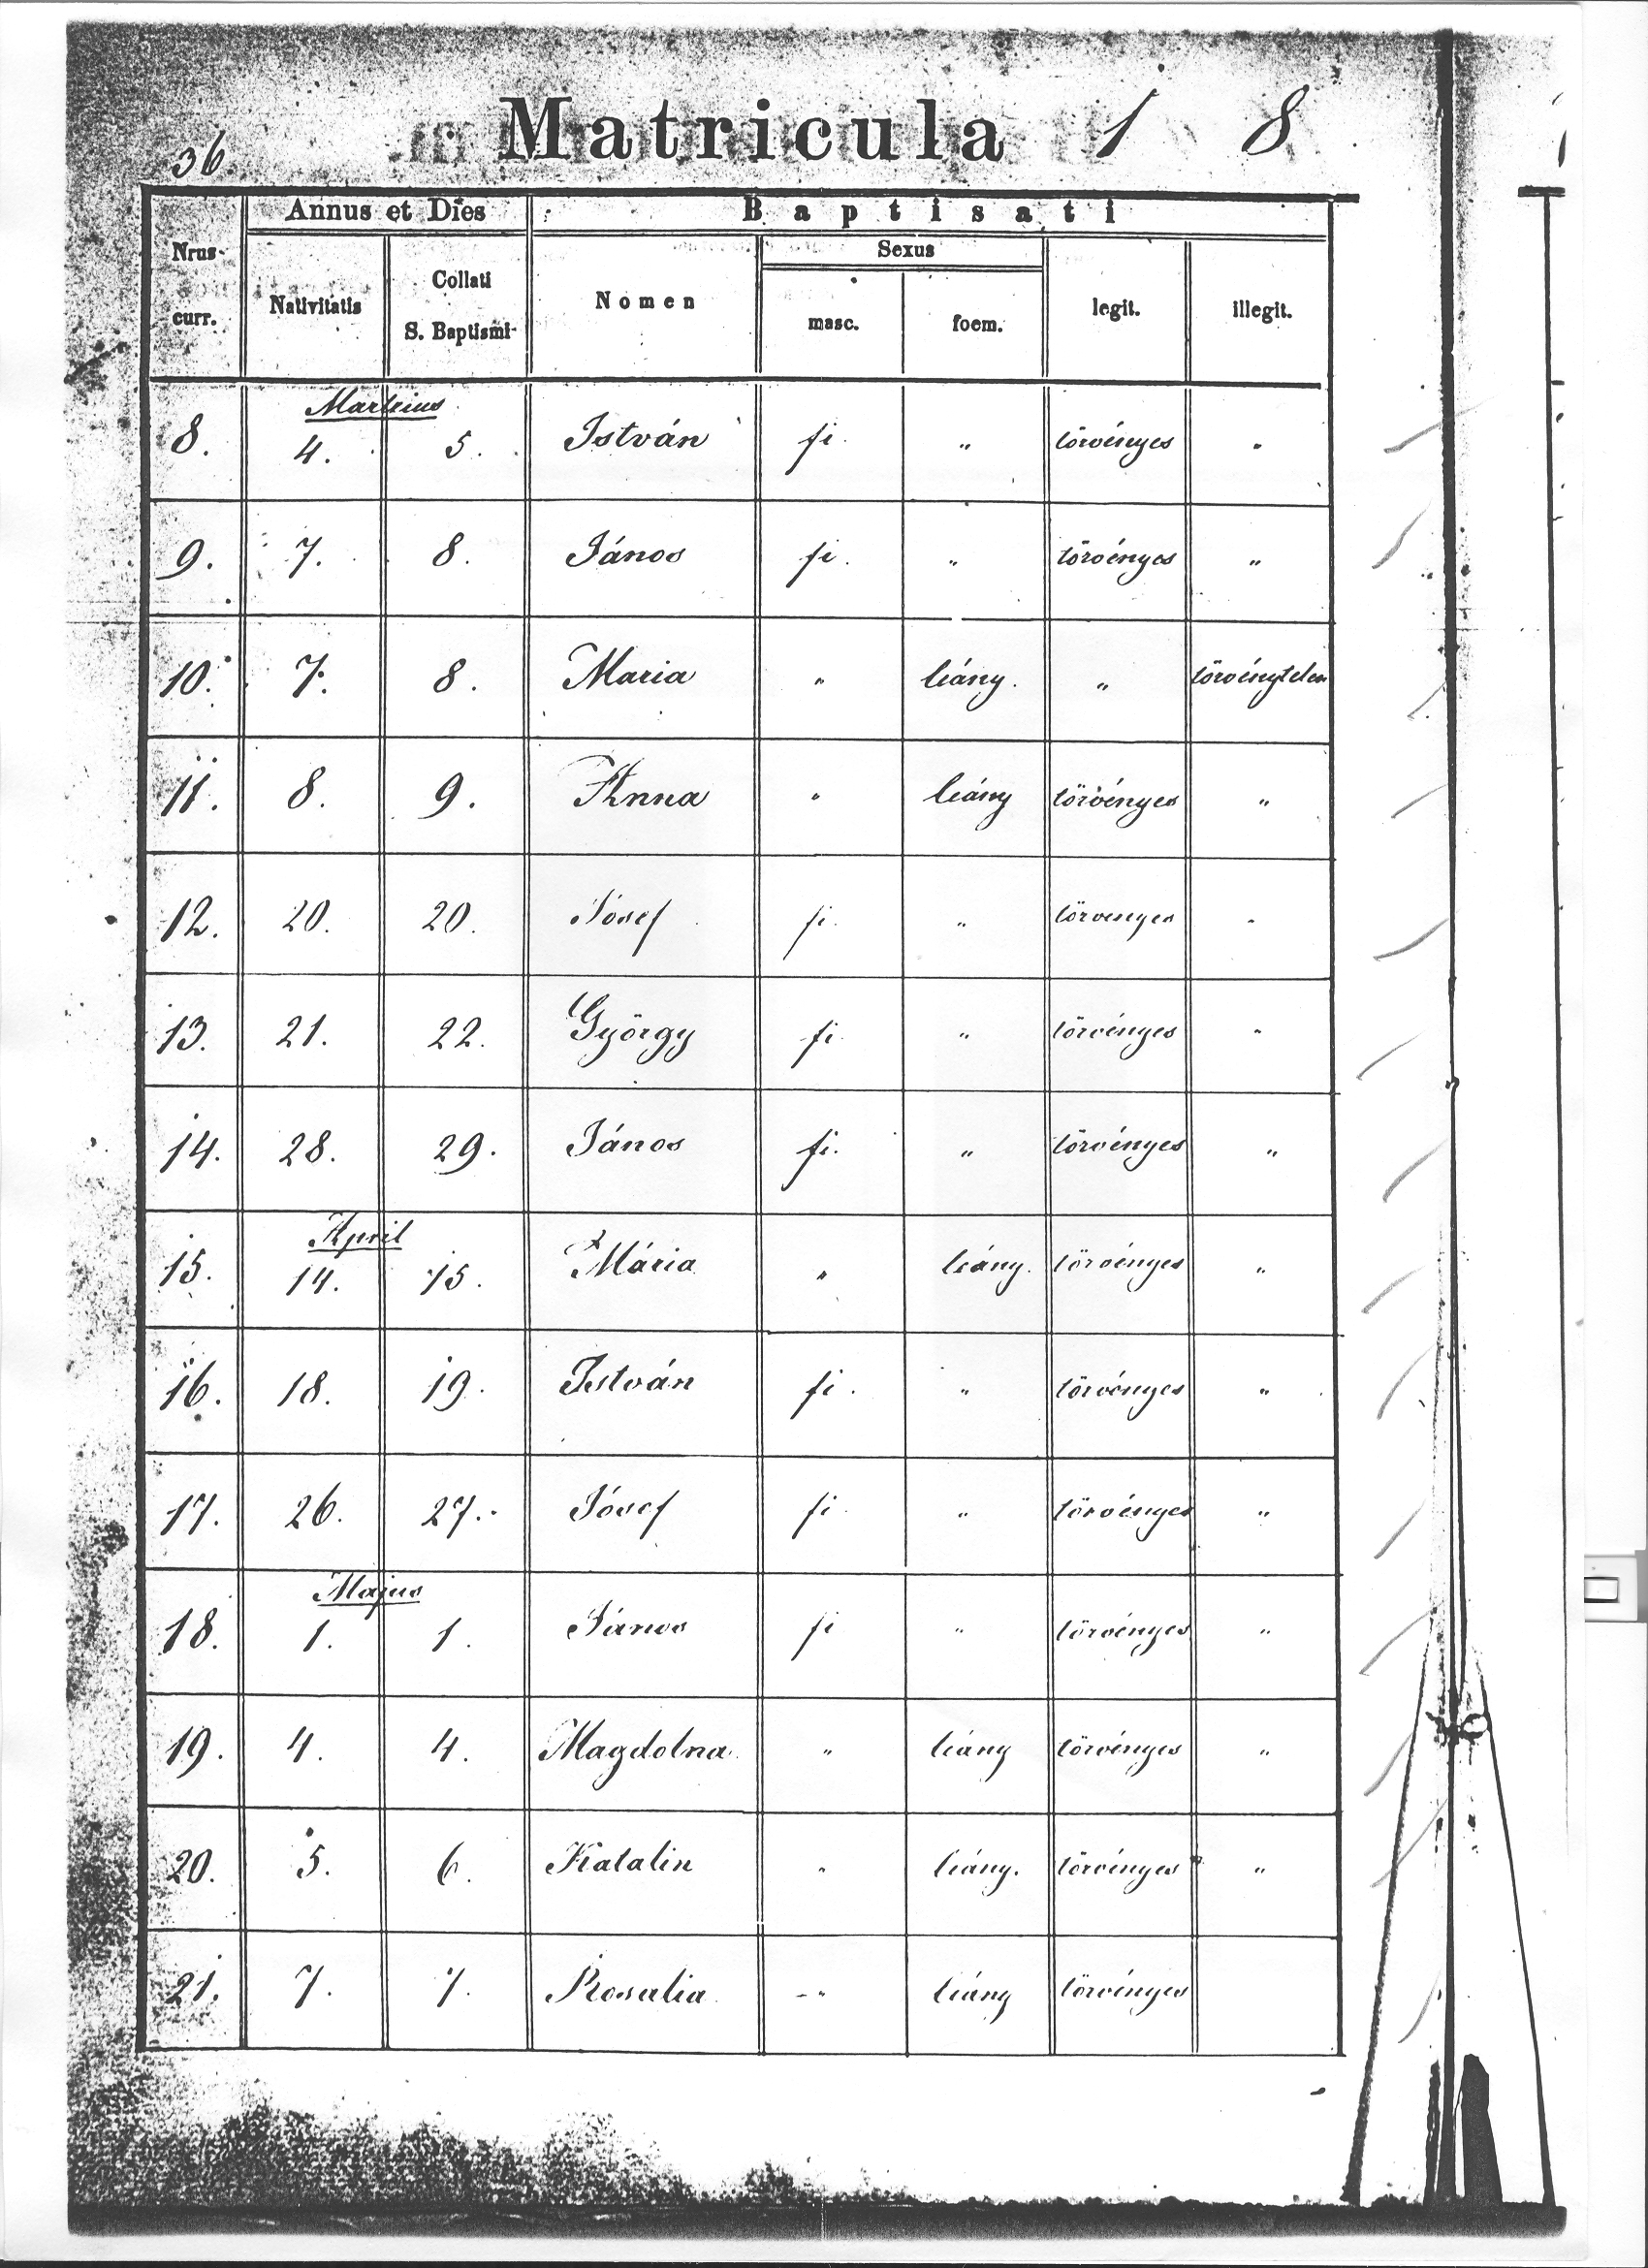 36. Matricula 1 8
Annus et Dies Baptisati
Nrus curr. Nativitatis Collati S. Baptismi Nomen Sexus masc. foem. legit. illegit.
Martius
8. 4. 5. István fi. „ törvényes „
9. 7. 8. János fi. „ törvényes „
10. 7. 8. Maria „ leány. „ törvénytelen
11. 8. 9. Anna „ leány törvényes „
12. 20. 20. Jósef fi. „ törvenyes „
13. 21. 22. György fi. „ törvényes „
14. 28. 29. János fi. „ törvényes „
April
15. 14. 15. Mária „ leány. törvényes „
16. 18. 19. István fi. „ törvényes „
17. 26. 27. Jósef fi. „ törvényes „
Majus
18. 1. 1. János fi „ törvényes „
19. 4. 4. Magdolna „ leány törvényes „
20. 5. 6. Katalin „ leány. törvényes „
21. 7. 7. Rosalia „ leány törvényes